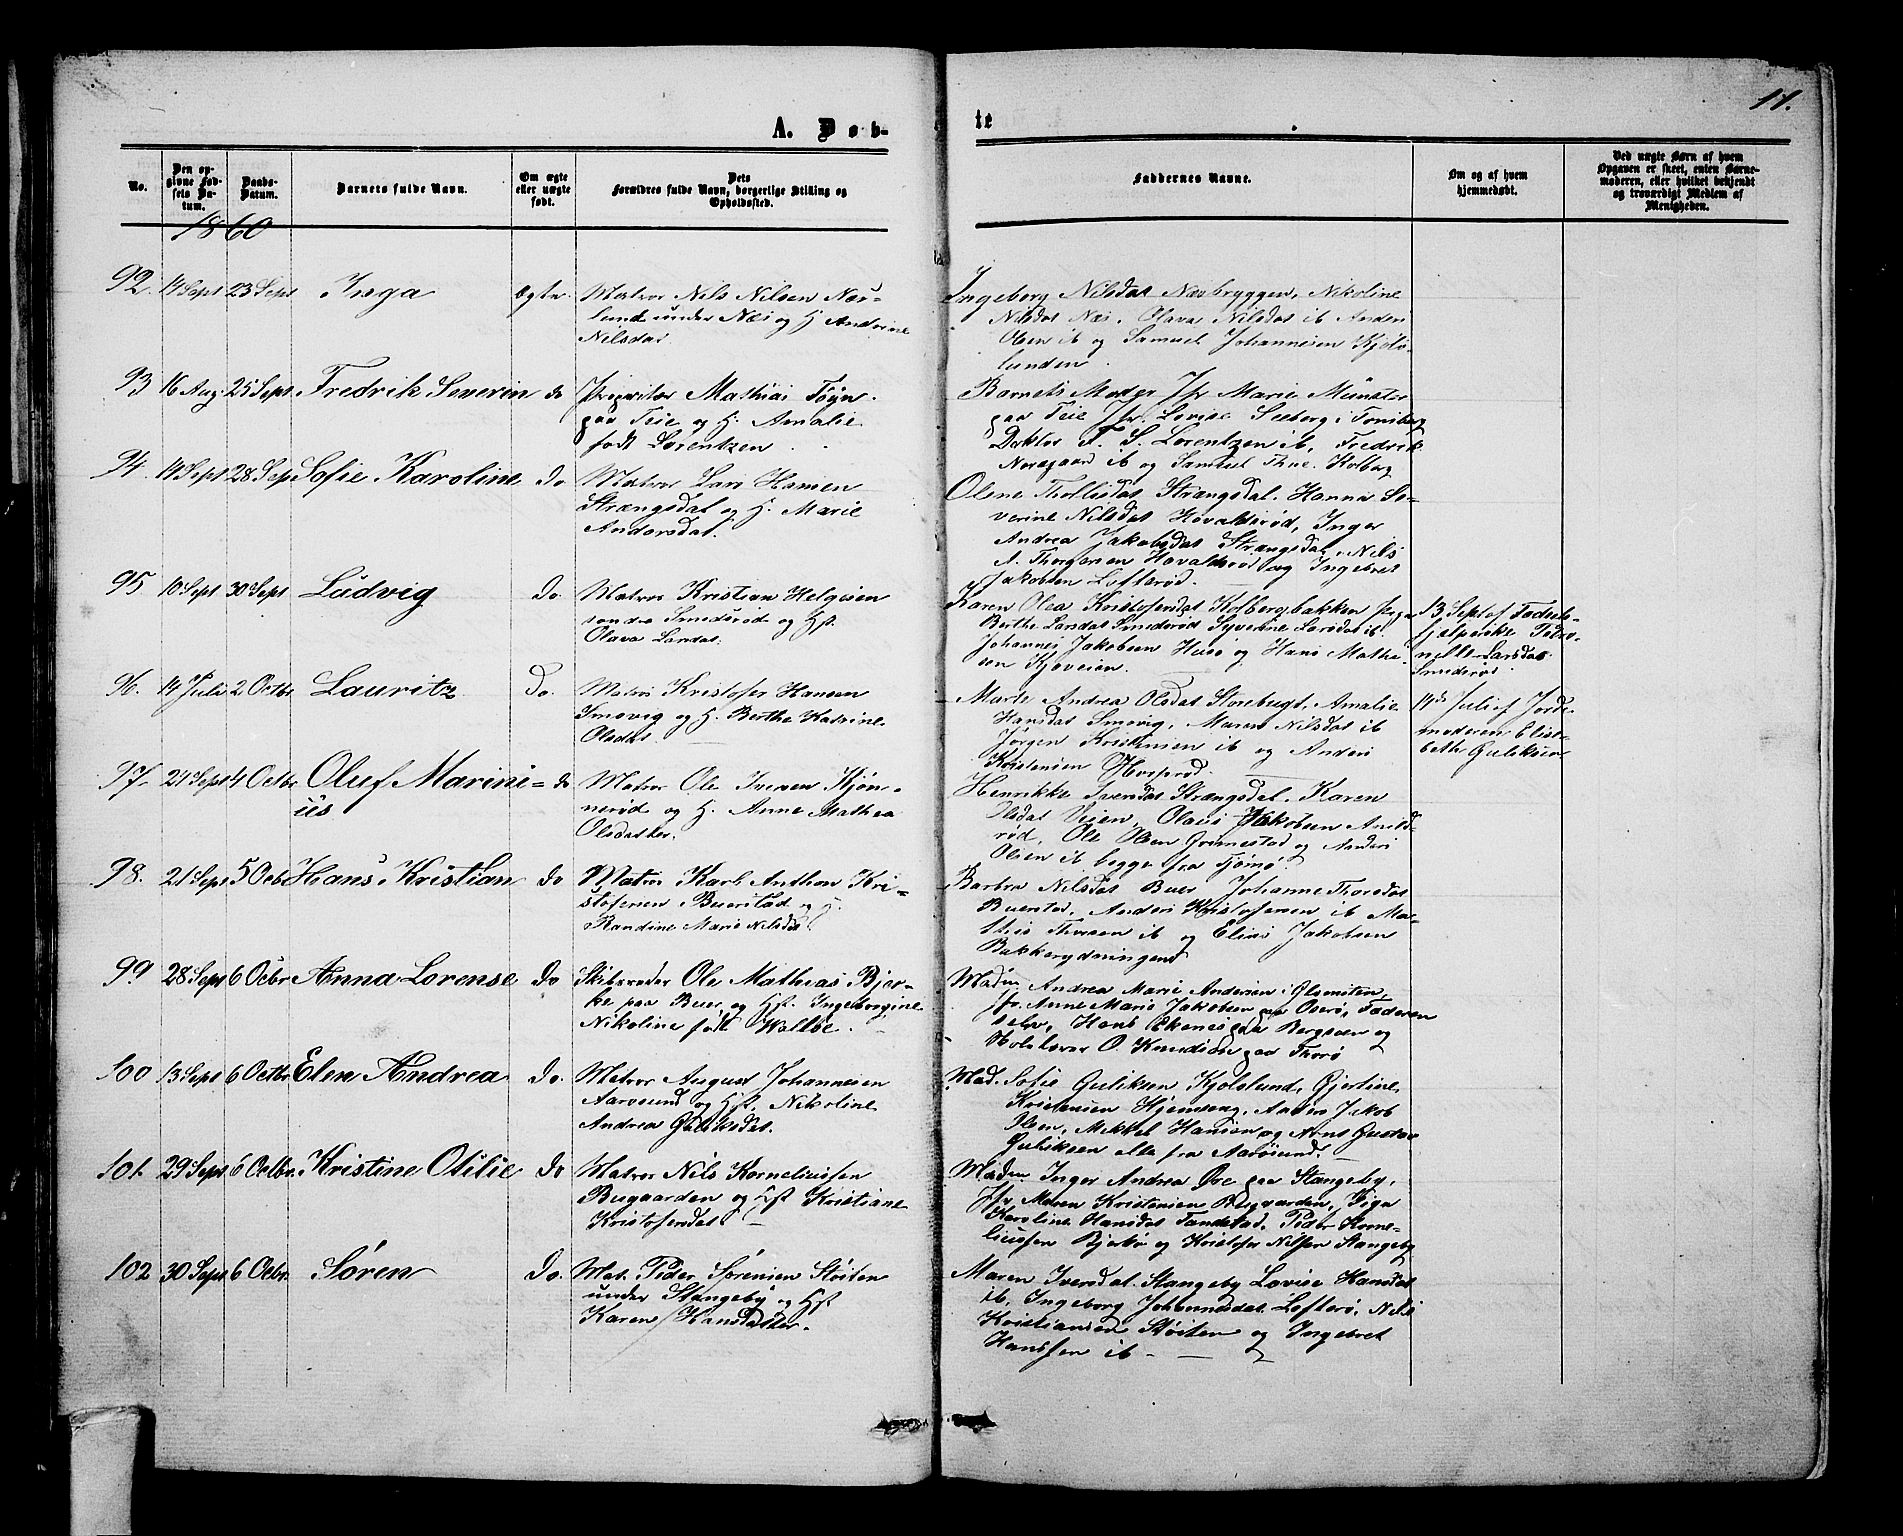 11.
A. Døb-
te
No.
Den op-
givne Fød-
sels Da-
tum.
Daabs-
Datum.
Barnets fulde Navn.
Om ægte
eller uægte
født.
Dets
Forældres fulde Navn, borgerlige Stilling og
Opholdssted.
Faddernes Navne.
Om og af hvem
hjemmedøbt.
Ved uægte Børn af hvem
Opgaven er skeet, enten Barne-
moderen, eller hvilket bekjendt
og troværdigt Medlem af
Menigheden.
1860
92. 14 Sept 23 Sept Inga ægte. Matros Nils Nilsen Næs-
lund under Næs og H. Andrine
Nilsdat
Ingeborg Nilsdat Næsbryggen, Nikoline
Nilsdat Næs, Olava Nilsdat ib Anders
Olsen ib og Samuel Johannesen Kjøls-
lunden.
93 16 Aug. 25 Sept. Fredrik Severin do Proprietær Mathias Føyn
paa Teie og H. Amalie
født Lorentzen
Barnets Moder Jfr Marie Münster
paa Teie Jfr. Lovise Seeberg i Tønsberg
Doktor F. S. Lorentzen ib, Fredrik
Noregaard ib og Samuel Thue Kolberg
94. 14 Sept 28 Sept Sofie Karoline do Matros Lars Hansen
Strængsdal og H. Marie
Andersdat.
Olene Thollisdat Strængsdal. Hanna Se-
verine Nilsdat Hovaldsrød, Inger
Andrea Jakobsdat Strængsdal, Nils
A. Thorgersen Havaldsrød og Ingebret
Jakobsen Lofterød.
95 10 Sept 30 Sept Ludvig do. Matros Kristian Helgesen
søndre Smedsrød og Hst.
Olava Larsdat.
Karen Olea Kristofersdat Kolbergbakken Pige
Berthe Larsdat Smedsrød Syverine Larsdat ib.
Johannes Jakobsen Husø og Hans Mathi-
sen Kjøveien.
13 Sept af Fødsels-
hjelperske Petro-
nelle Larsdat
Smedsrød.
96. 14 Juli 2 Octbr Lauritz Do. Matros Kristofer Hansen
Smøvig og H. Berthe Katrine
Olsdat.
Marte Andrea Olsdat Storebugt, Amalie
Hansdat Smøvig, Maren Nilsdat ib
Jørgen Kristensen ib og Anders
Kristensen
14de Juli af Jorde-
moderen Elise-
beth Guliksen
97. 21 Sept 4 Octbr Oluf Marini-
us do Matros Ole Iversen Kjøn-
nerød og H. Anne Mathea
Olsdatter.
Henrikke Svensdat Strængsdal. Karen
Olsdat Veien, Olaus Jakobsen
rød, Ole Olsen Grimestad og Anders
Olsen ib begge fra Tjømø.
98. 21 Sept 5 Ocbr Hans Kristian do Matros Karl Anthon Kri-
stofersen Buerstad og H.
Randine Marie Nilsdat
Barbra Nilsdat Buer Johanne Thorsdat
Buerstad, Anders Kristofersen ib Ma-
this Thoresen ib og Elias Jakobsen
Bakkerydningen
99. 28 Sept 6 Ocbr Anna Lorense do Skibsreder Ole Mathias Bjer-
ke paa Buer og Hst. Ingeborgine
Nikoline født Wølbe.
Madm Andrea Marie Andersen i Glomsten,
Jfr. Anne Marie Jakobsen paa Oserø, Faderen
selv, Hans Ekenes paa Bergsven og
Holelærer O. Knudsen paa Thorø
100 13 Sept 6 Octbr Elen Andrea do. Matros August Johannesen
Aarøsund og Hst. Nikoline
Andrea Guliksdat.
Mad. Sofie Guliksen Kjølslund, Gjertine
Kristensen Hjemseng, Anders Jakob
Olsen, Mekkel Hansen og Hans Gustav
Guliksen alle fra Aarøsund.
101. 29 Sept 6 Octbr Kristine Otilie do Matros Nils Korneliussen
Bugaarden og Hst Kristiane
Kristofersdat
Madm Inger Andrea Øre paa Stangeby,
Jfr Maren Kristensen Bugaarden, Piga
Karoline Hansdat Tandstad, Peder Korne-
liussen Bjerkø og Kristofer Nilsen Stangeby
102 30 Sept 6 Ocbr. Søren do. Mat. Peder Sørensen Støiten
under Stangeby og Hst
Karen Hansdatter.
Maren Iversdat. Stangeby Lovise Hansdat
ib, Ingeborg Johannesdat Lofterø, Nils
Kristiansen Støiten og Ingebret
Hanssen ib